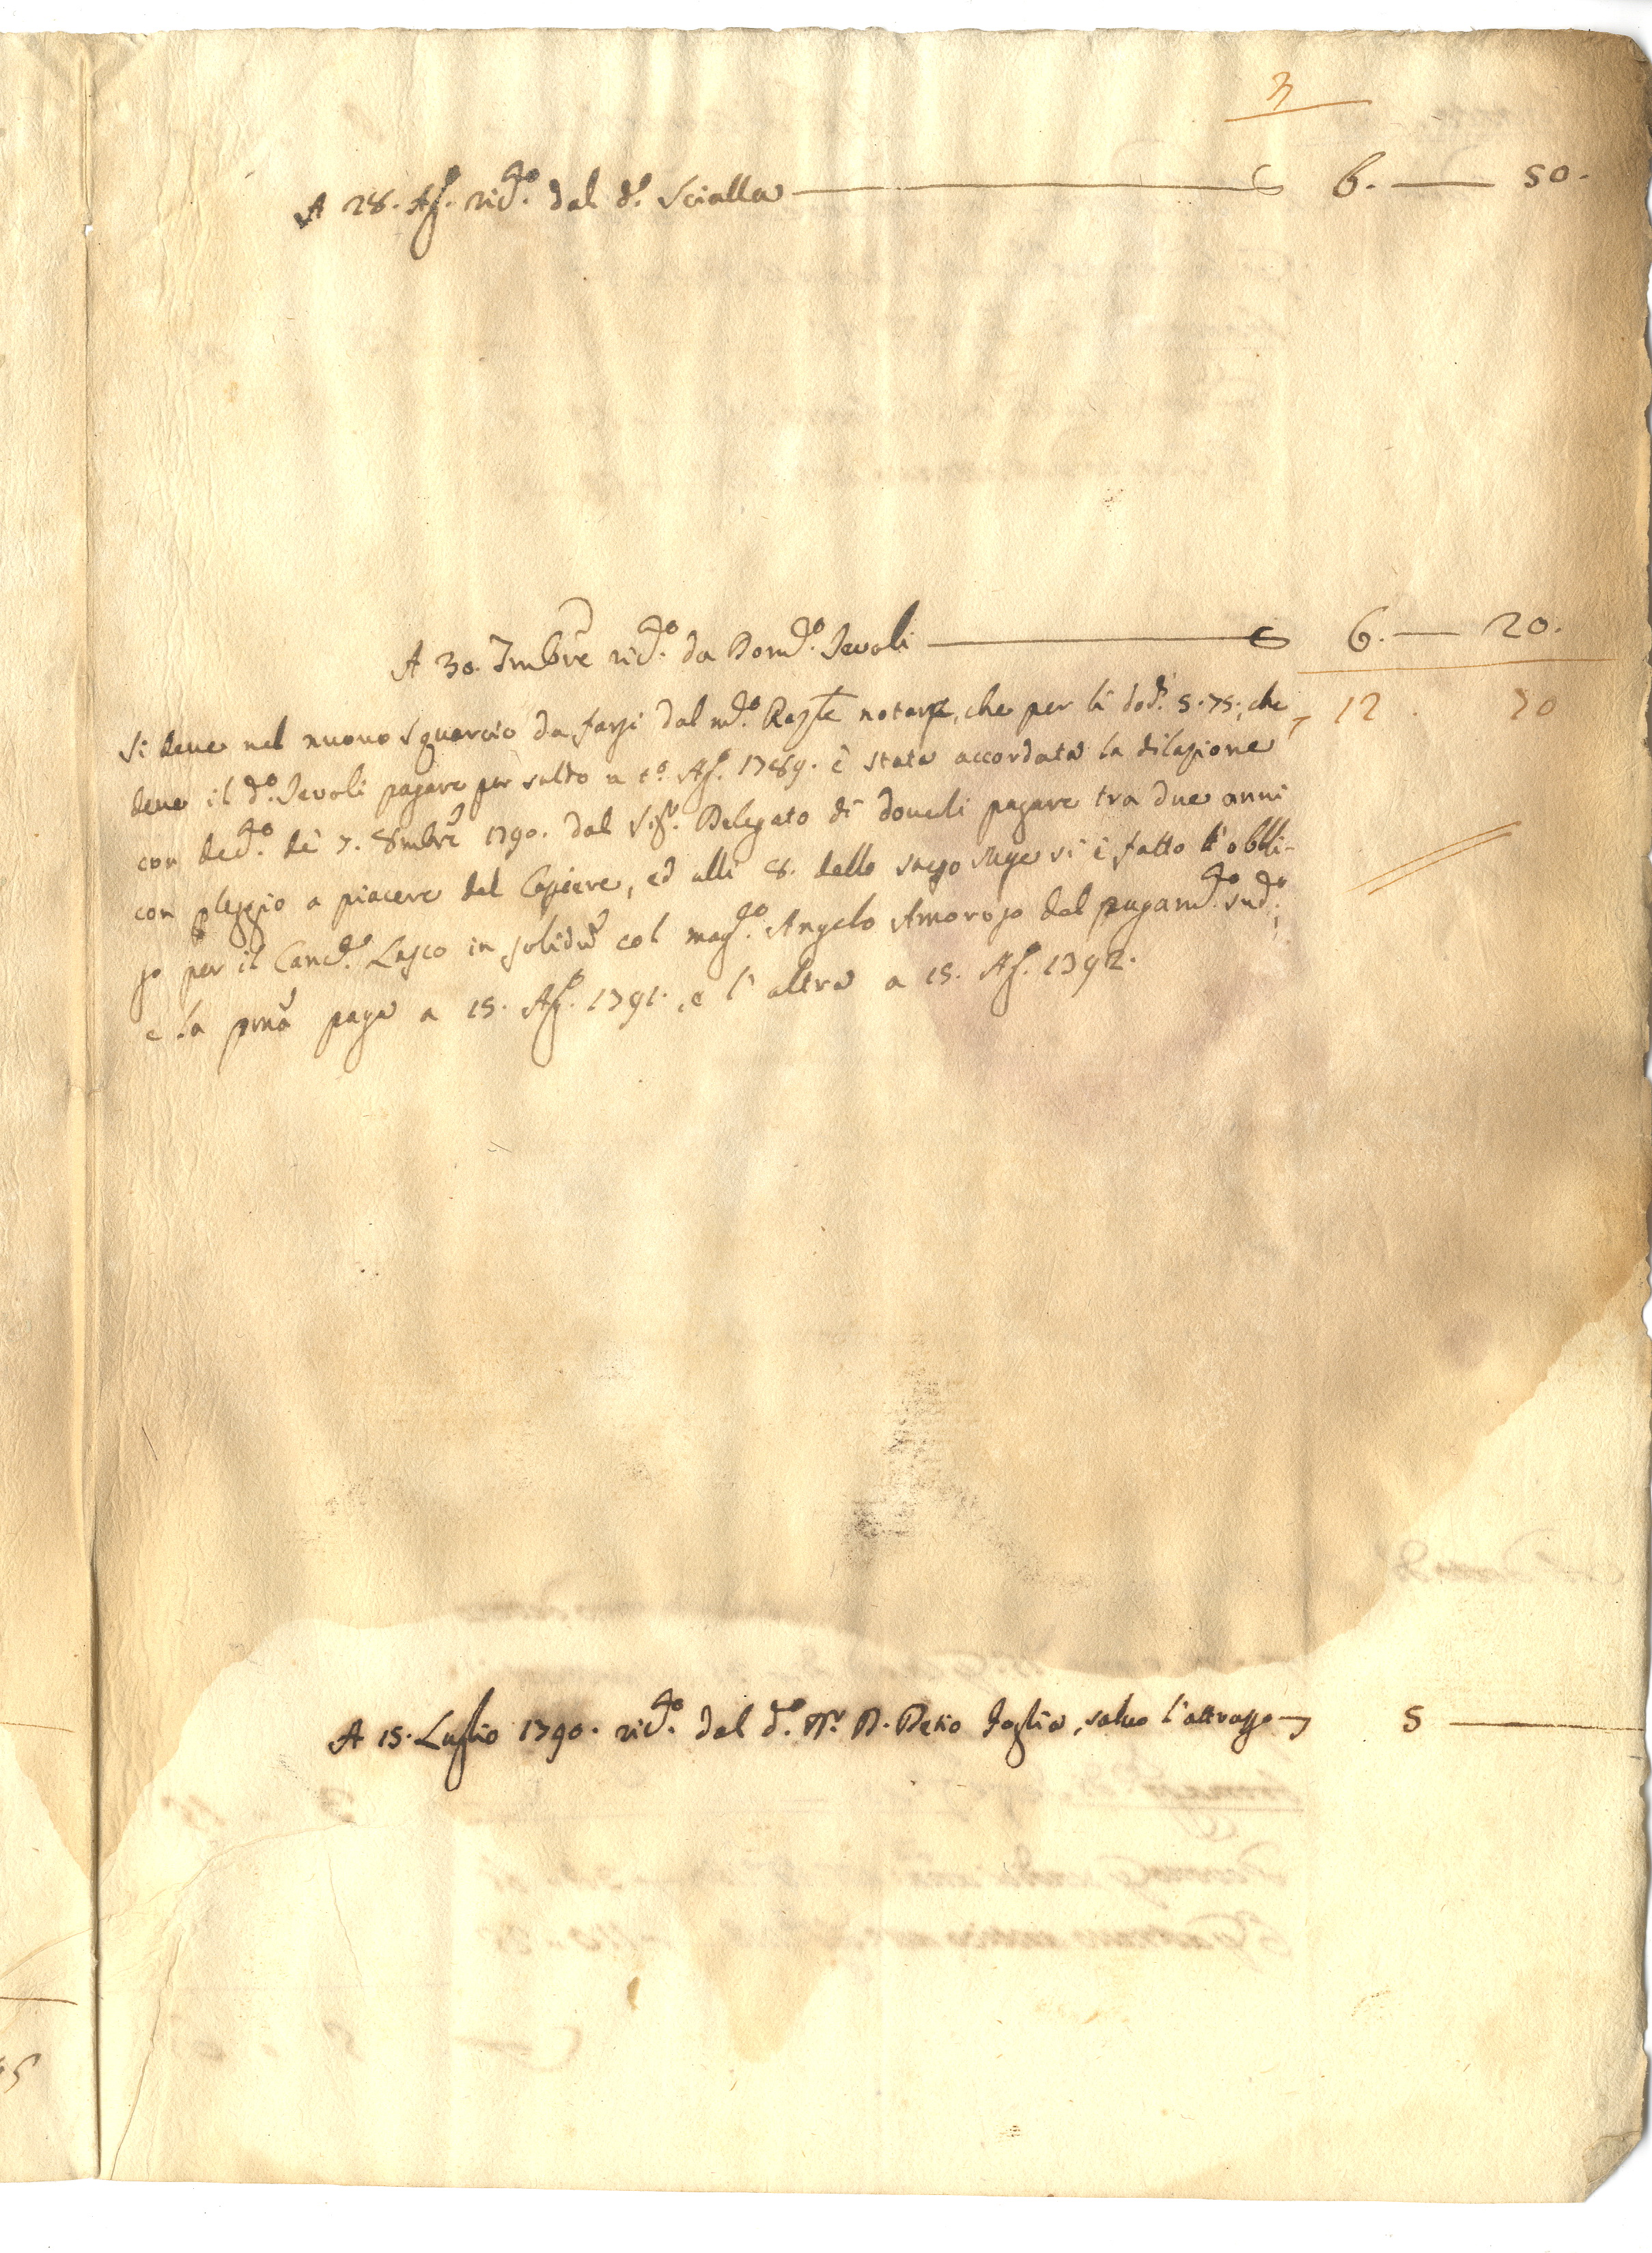 3
A 28. Ag.º ric.to dal d.º Scialla 6. — 50.
A 30. 7mbre ric.to da Dom.co Jevoli 6. — 20.
12 . 70
Si deve nel nuovo squarcio da farsi dal m.co Raz.le notarsi, che per li dod.i 5.75, che
deve il d.º Jevoli pagare per saldo a t.º Ag.º 1789. è stata accordata la dilazione
con dec.to de 7. 8mbre 1790. dal Sig.r Delegato di doverli pagare tra due anni
con pleggio a piacere del Cassiere, ed alli 8. dello stesso mese si è fatto l'obbli-
go per il Canc.º Lasco in solidum col mag.co Angelo Amoroso del pagam.to sud.to,
e la prma paga a 15. Ag.º 1791., e l'altra a 15. Ag.º 1792.
A 15. Luglio 1790. ric.to dal d.º D. Decio Foglia, salvo l'attrasso 5 —